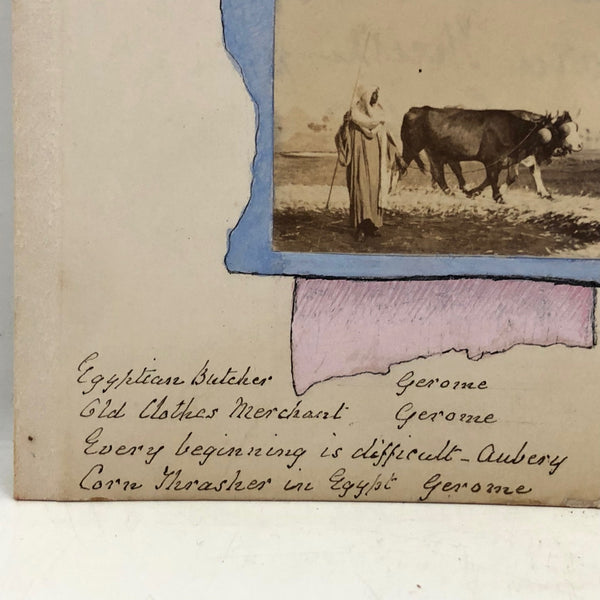 Egyptian Butcher Gerome
Old Clothes Merchant Gerome
Every beginning is difficult - Aubery
Corn Thrasher in Egypt Gerome